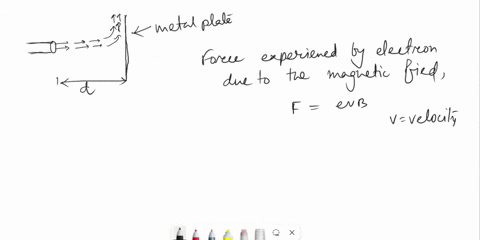 metal plate
d
Force experiened by electron
due to the magnetic fied,
F = evB
v = velocity